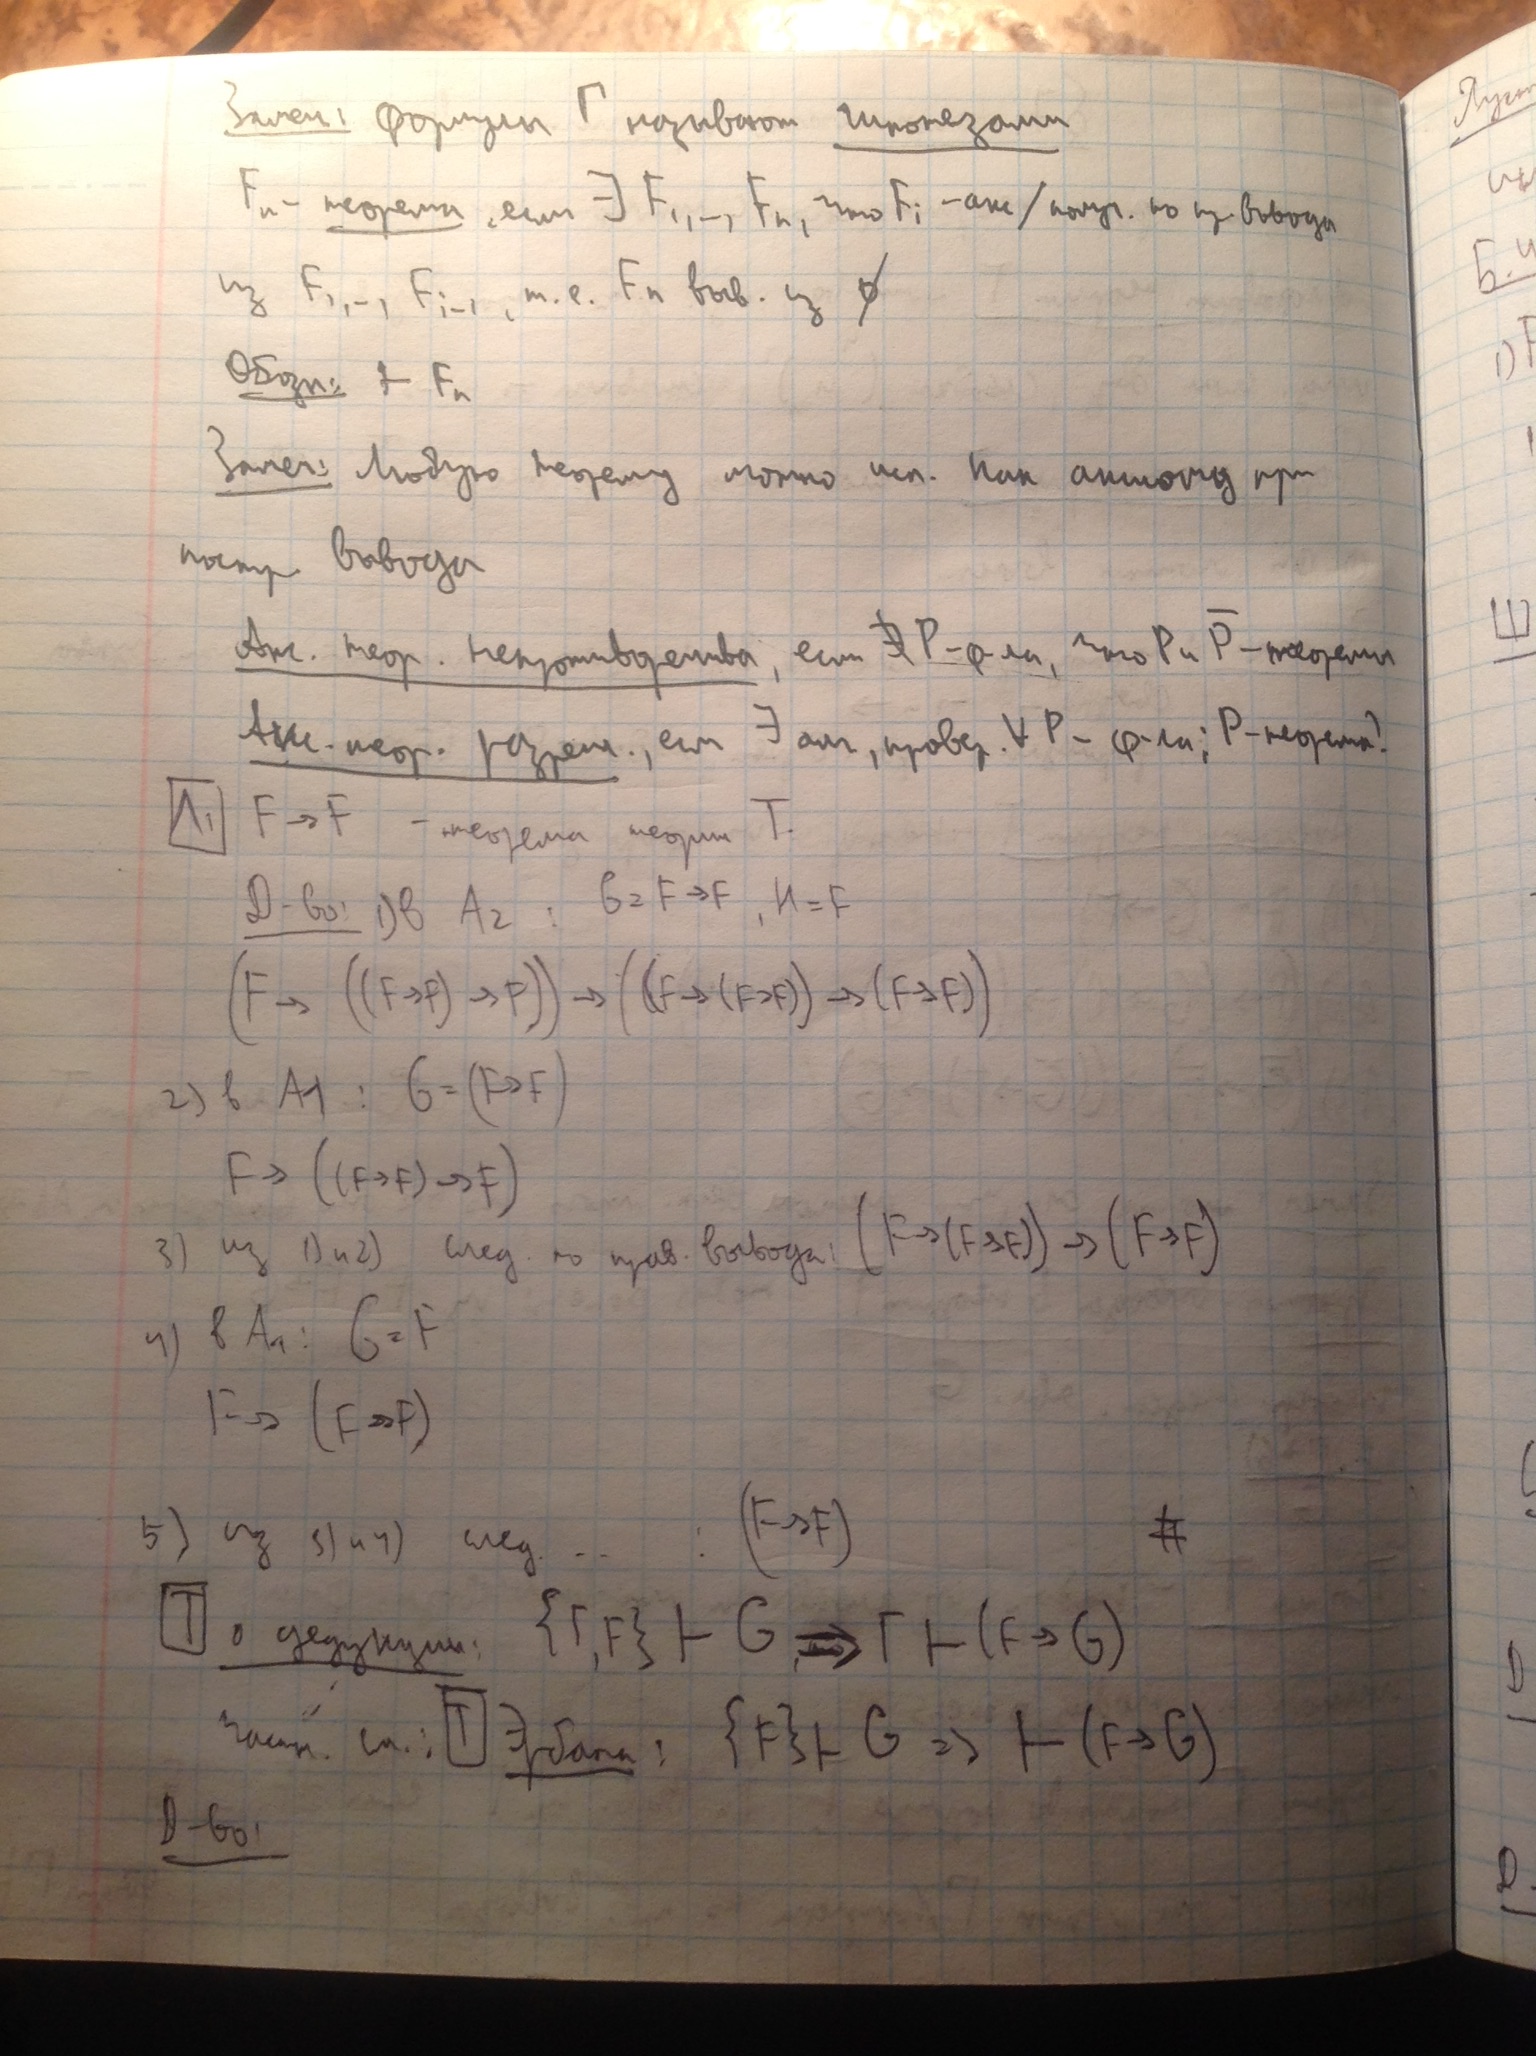 Замеч: формулы Г называют гипотезами
Fn - теорема, если ∃ F1,-, Fn, что Fi - акс/получ. по пр. вывода
из F1,-, Fi-1, т.е. Fn выв. из ∅
Обозн: ⊢ Fn
Замеч: Любую теорему можно исп. как аксиому при
постр. вывода
Акс. теор. непротиворечива, если ∄ P-ф-ла, что P и P̅ - теоремы
Акс. теор. разреш., если ∃ алг, провер. ∀ P - ф-ла; P-теорема?
Л1 F→F - теорема теории T.
D-во: 1) в A2 : G = F→F, H = F
(F→ ((F→F) →F)) → ((F→(F→F)) → (F→F))
2) в A1 : G = (F→F)
F→ ((F→F) →F)
3) из 1) и 2) след. по прав. вывода: (F→(F→F)) → (F→F)
4) в A1: G = F
F→ (F→F)
5) из 3) и 4) след. .. : (F→F) #
T о дедукции: {Г,F} ⊢ G ⇒ Г ⊢ (F→G)
частн. сл.: T Эрбрана: {F} ⊢ G ⇒ ⊢ (F→G)
D-во:
Б.
1) F
D
D-